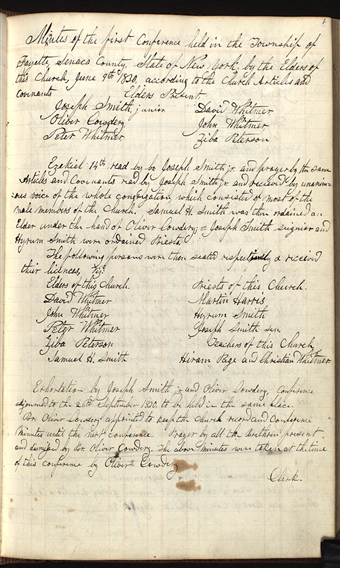 Minutes of the first Conference held in the Township of
Fayette, Seneca County, State of New York, by the Elders of
this Church, June 9th 1830, according to the Church Articles and
Covenants Elders Present
Joseph Smith junior David Whitmer
Oliver Cowdery John Whitmer
Peter Whitmer Ziba Peterson
Ezekiel 14th read by br Joseph Smith jr and prayer by the same
Articles and Covenants read by Joseph Smith jr and received by unanim
ous voice of the whole congregation, which consisted of most of the
male members of the Church. Samuel H. Smith was then ordained an
Elder under the hand of Oliver Cowdery & Joseph Smith senior and
Hyrum Smith were ordained Priests.
The following persons were then seated respectively & received
their licences, viz:
Elders of this Church. Priests of this Church.
David Whitmer Martin Harris
John Whitmer Hyrum Smith
Peter Whitmer Joseph Smith sen
Ziba Peterson Teachers of this Church
Samuel H. Smith Hiram Page and Christian Whitmer
Exhortation by Joseph Smith jr and Oliver Cowdery. Conference
adjourned to the 26th September 1830, to be held in the same place.
Br. Oliver Cowdery appointed to keep the Church record and Conference
minutes until the next conference. Prayer by all the brethren present
and dismissed by br. Oliver Cowdery. The above minutes were taken at the time
of this conference by Oliver Cowdery
Clerk.